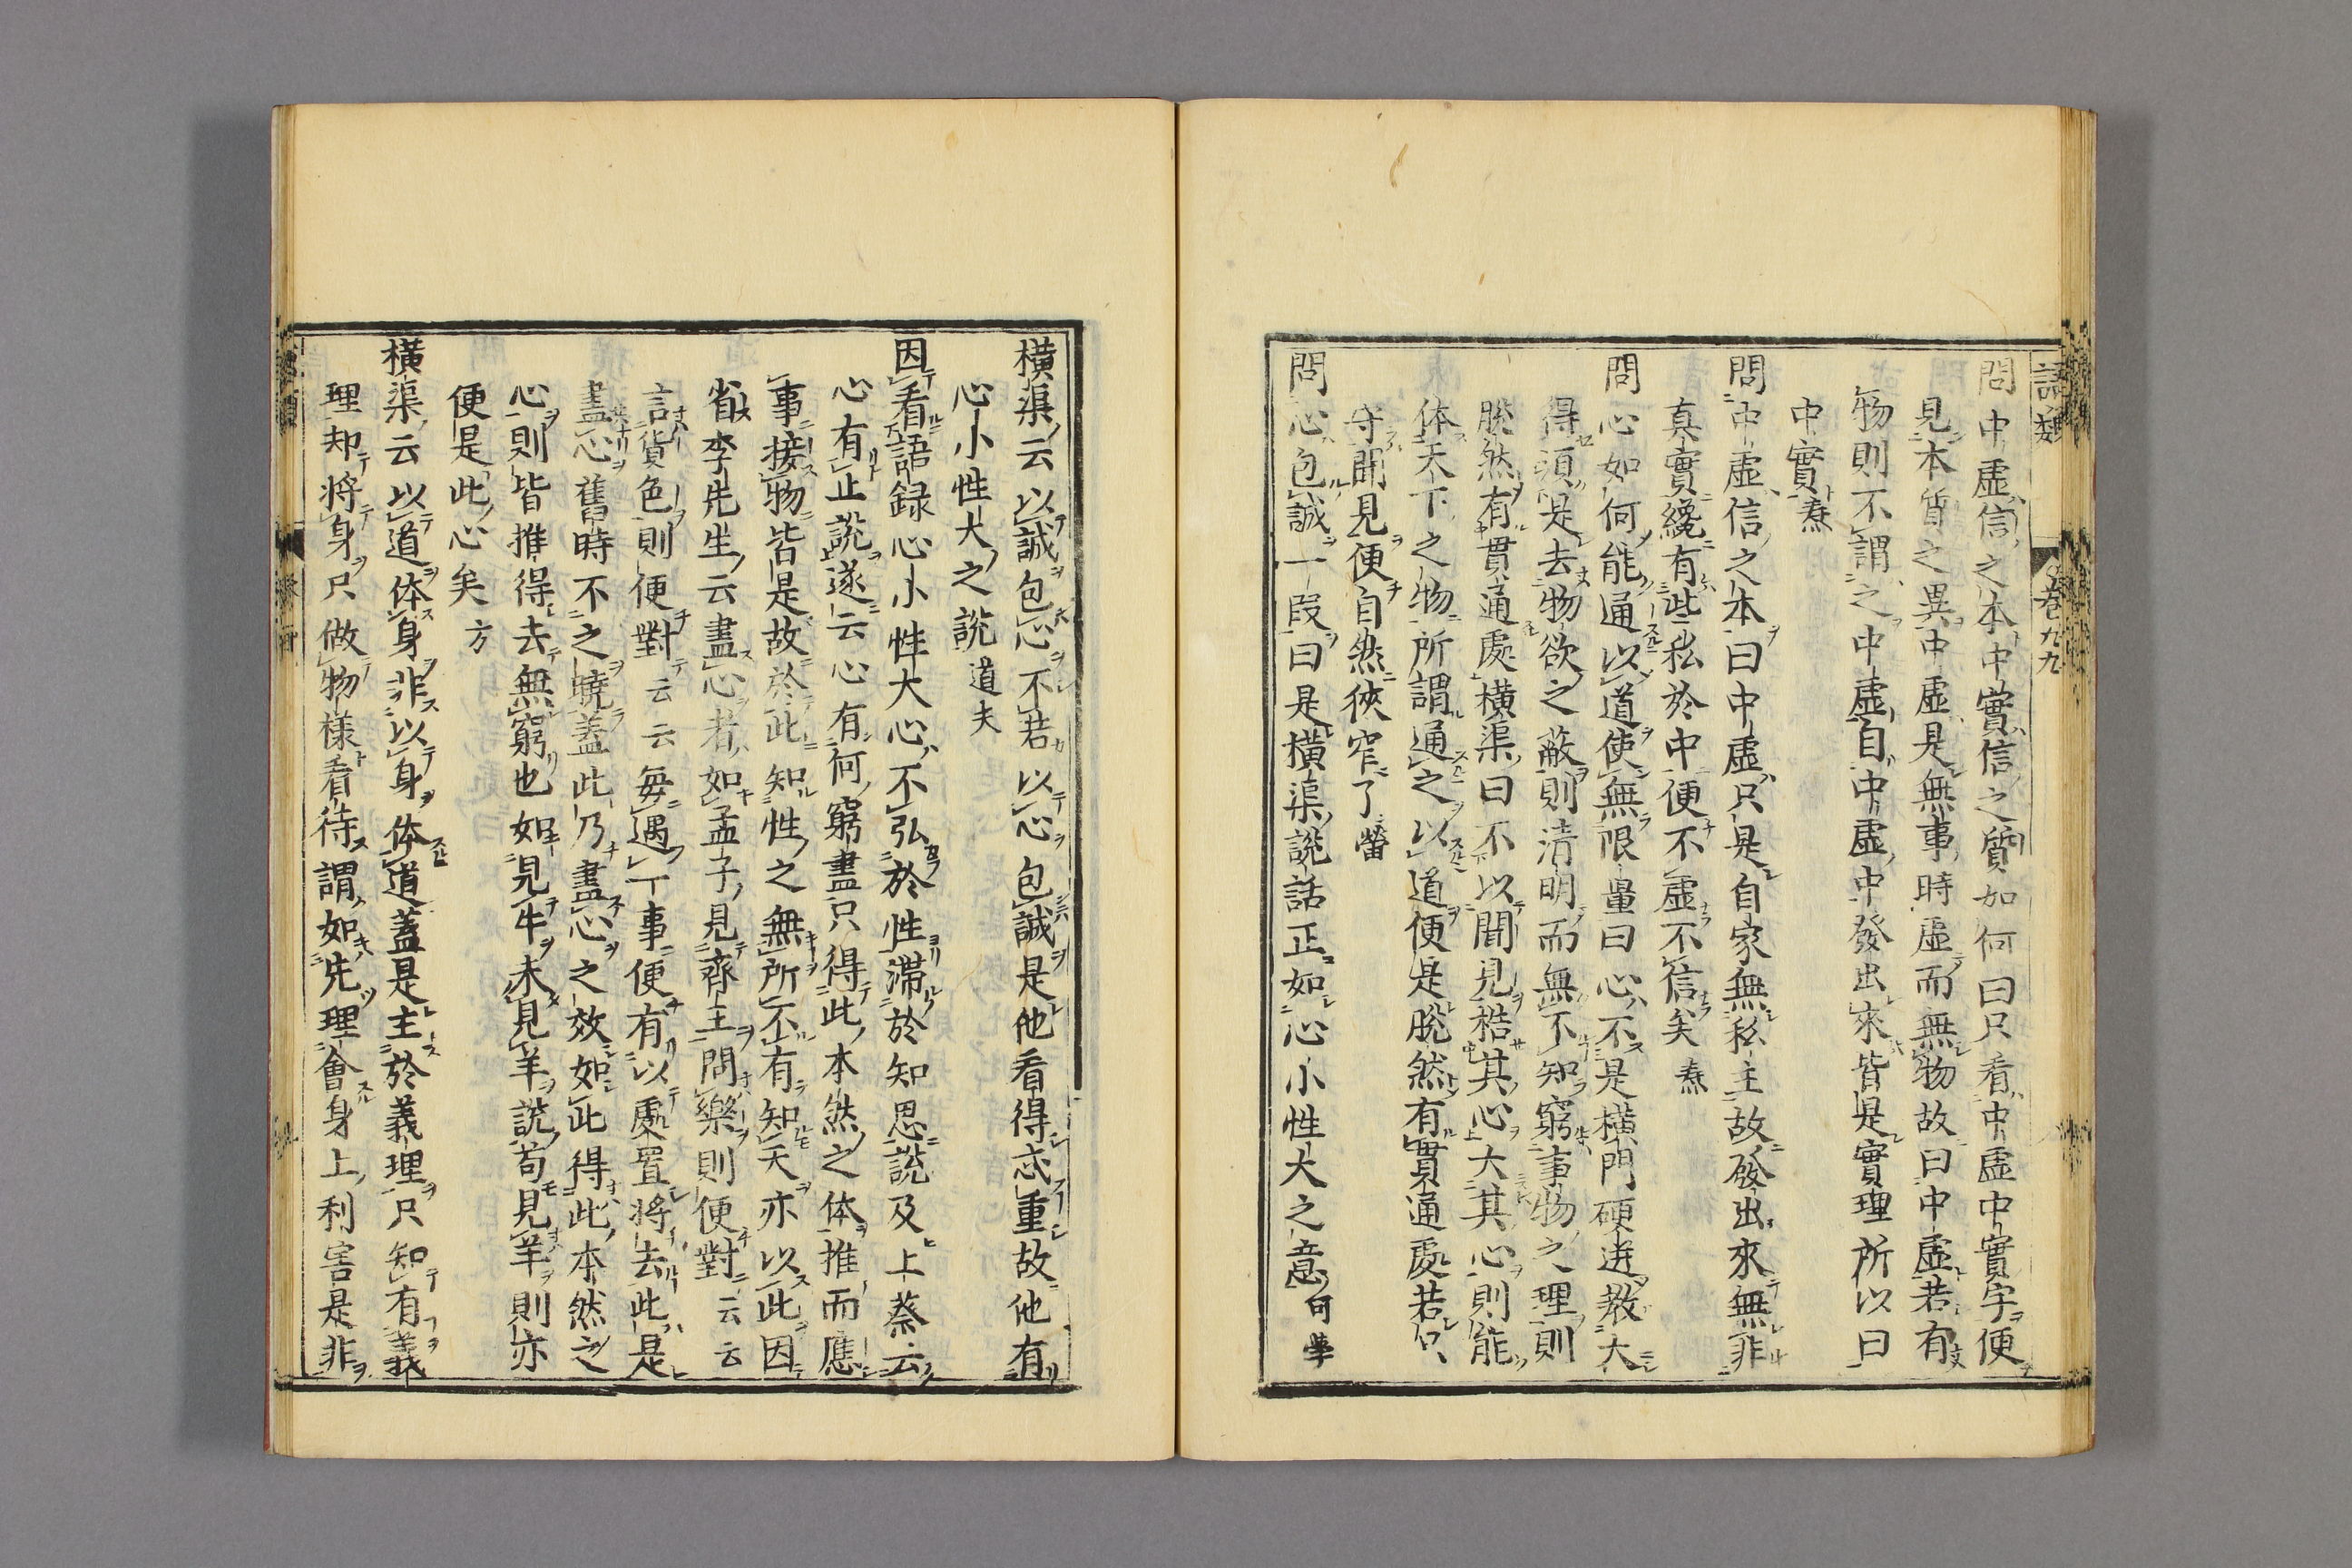 語類　卷九九
問中虛信之本中實信之質如何曰只看中虛中實字便
見本質之異中虛是無事時虛而無物故曰中虛若有
物則不謂之中虛自中虛中發出來皆是實理所以曰
中實燾
問中虛信之本曰中虛只是自家無私主故發出來無非
真實纔有些私於中便不虛不信矣燾
問心如何能通以道使無限量曰心不是橫門硬迸教大
得須是去物欲之蔽則清明而無不知窮事物之理則
脫然有貫通處橫渠曰不以聞見梏其心大其心則能
体天下之物所謂通之以道便是脫然有貫通處若只
守聞見便自然狹窄了㽦
問心包誠一段曰是橫渠說話正如心小性大之意可學
橫渠云以誠包心不若以心包誠是他看得忒重故他有
心小性大之說道夫
因看語録心小性大心不弘於性滯於知思說及上蔡云
心有止說遂云心有何窮盡只得此本然之体推而應
事接物皆是故於此知性之無所不有知天亦以此因
省李先生云盡心者如孟子見齊王問樂則便對云云
言貨色則便對云云每遇一事便有以處置將去此是
盡心舊時不之曉蓋此乃盡心之效如此得此本然之
心則皆推得去無窮也如見牛未見羊說苟見羊則亦
便是此心矣方
橫渠云以道体身非以身体道蓋是主於義理只知有義
理却將身只做物樣看待謂如先理會身上利害是非